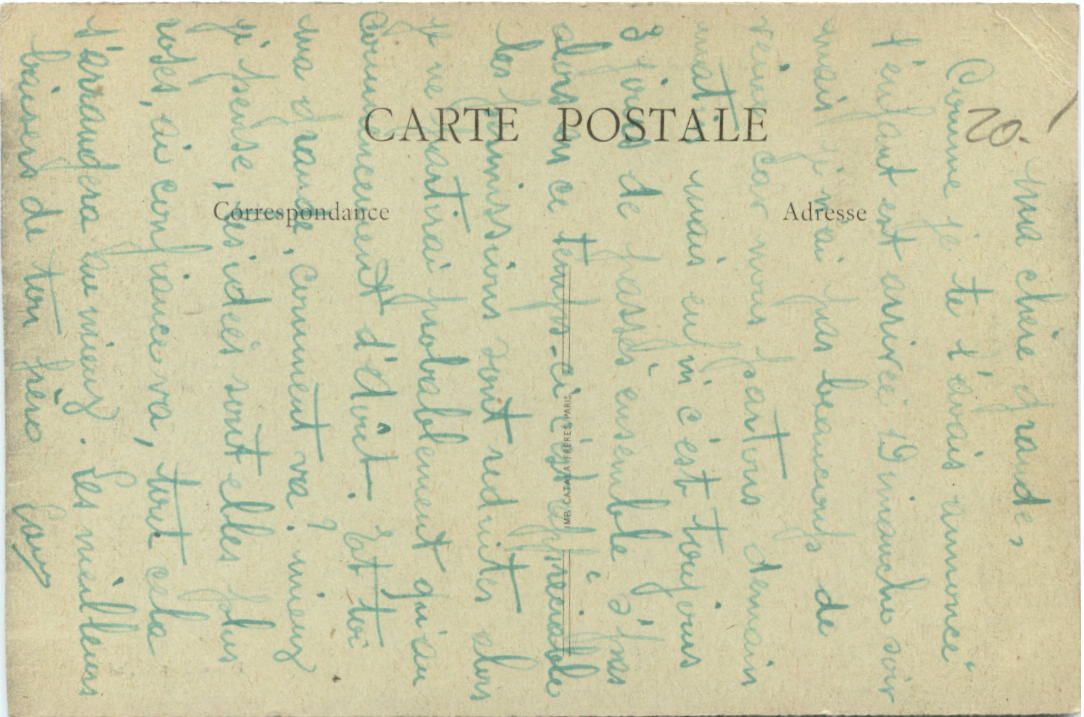 CARTE POSTALE
Correspondance
Adresse
IMP. CATALA FRERES, PARIS
20.-
Ma chère grande,
Comme je te l'avais annoncé
l'enfant est arrivée Dimanche soir
mais je n'ai pas beaucoup de
veine car nous partons demain
matin mais enfin c'est toujours
3 jours de passés ensemble n'pas
alors en ce temps-ci c'est appréciable
les permissions sont reduites alors
je ne partirai probablement qu'au
commencement d'Août. Et toi
ma grande, comment va? mieux
je pense, tes idées sont elles plus
roses, ai confiance va, tout cela
s'arrangera au mieux. Les meilleurs
baisers de ton frère